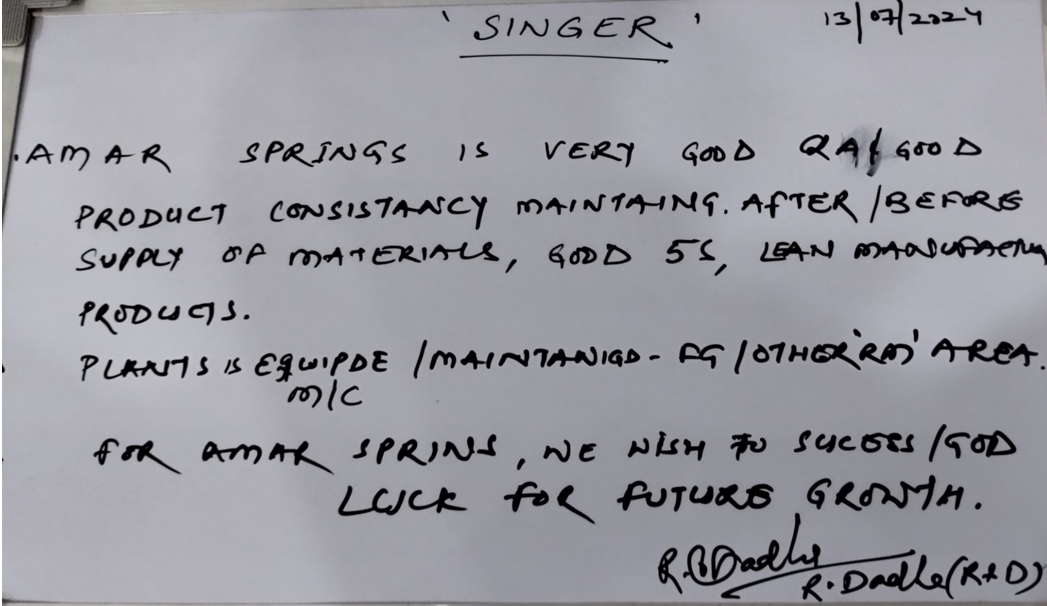 'SINGER' 13/07/2024
.AMAR SPRINGS IS VERY GOOD QA/ GOOD
PRODUCT CONSISTANCY MAINTAING. AFTER/BEFORE
SUPPLY OF MATERIALS, GOOD 5S, LEAN
PRODUCTS.
PLANTS IS EQUIPDE /MAINTANIGD - FG /OTHER 'RM' AREA.
M/C
FOR AMAR SPRINS, WE WISH TO SUCESS/GOD
LUCK FOR FUTURE GROWTH.
R. Dadhe (R&D)